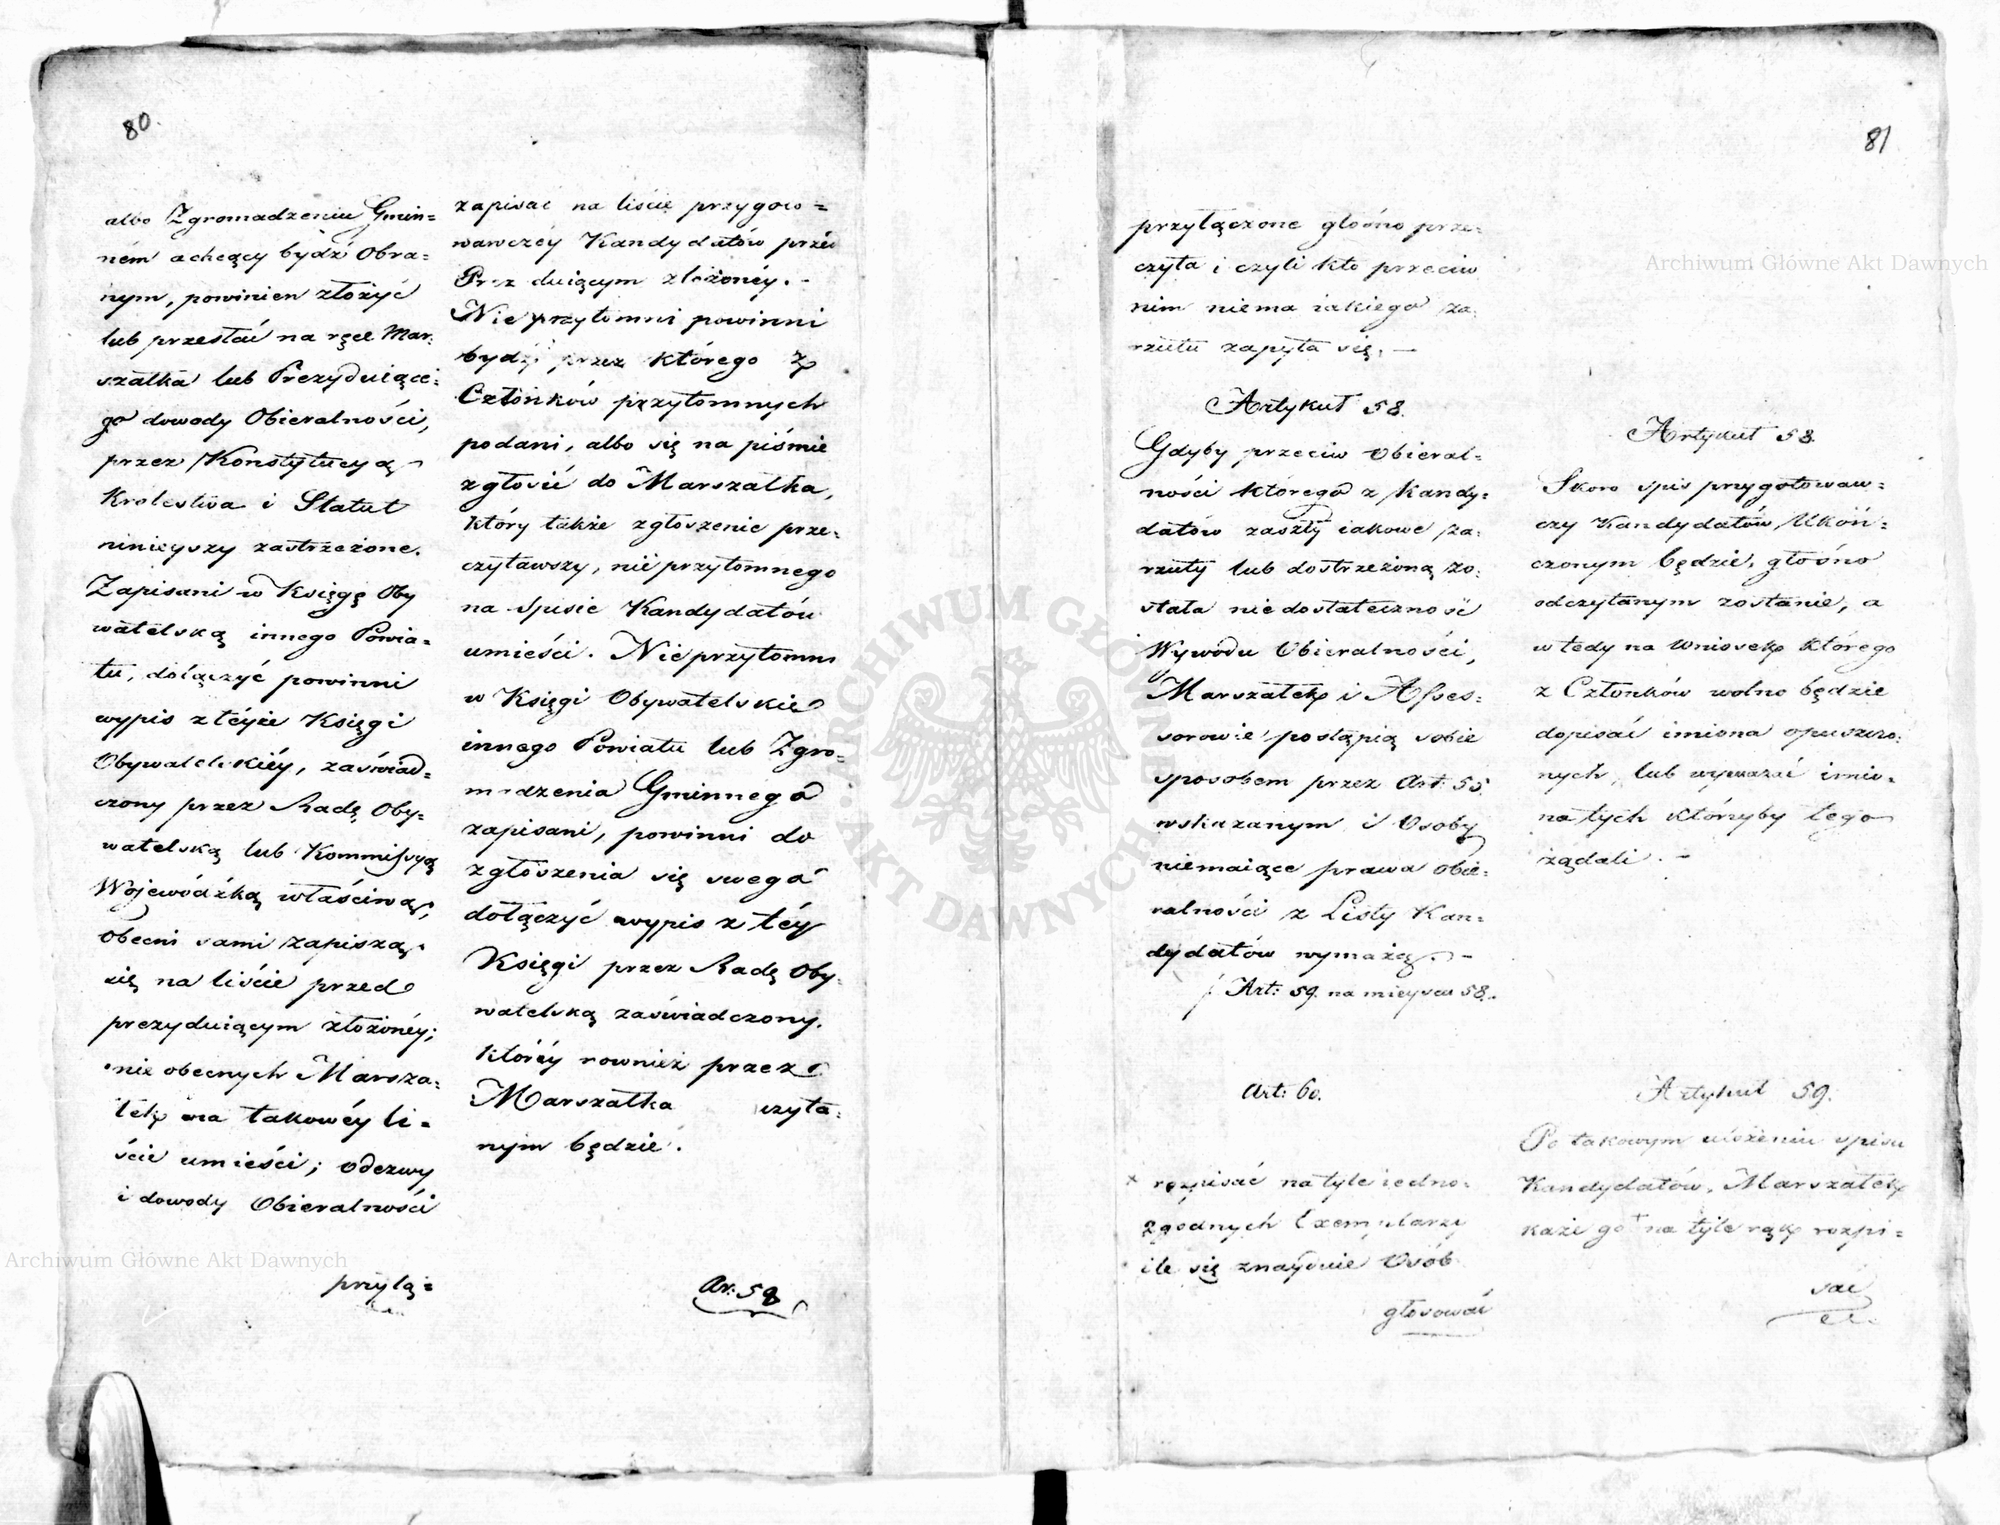 80.
albo Zgromadzeniu Gmin=
ném a chcący bydź Obra=
nym, powinien złożyć
lub przesłać na ręce Mar=
szałka lub Prezyduiące=
go dowody Obieralności,
przez Konstytucyą
Królestwa i Statut
ninieyszy zastrzeżone.
Zapisani w Księgę Oby
watelską innego Powia=
tu, dołączyć powinni
wypis z téyże Księgi
Obywatelskiéy, zaświad=
czony przez Radę Oby=
watelską lub Kommissyą
Wojewódzką właściwą,
Obecni sami zapiszą
się na liście przed
prezyduiącym złożonéy;
nie obecnych Marsza=
łek na takowéy li=
ście umieści; odezwy
i dowody Obieralności
przyłą=
zapisać na liście przygoto=
wawczéy Kandydatów przed
Prezyduiącym złożonéy.
Nie przytomni powinni
bydź przez którego z
Członków przytomnych
podani, albo się na piśmie
zgłosić do Marszałka,
który także zgłoszenie prze=
czytawszy, nie przytomnego
na spisie Kandydatów
umieści. Nieprzytomni
w Księgi Obywatelskie
innego Powiatu lub Zgro=
madzenia Gminnego
zapisani, powinni do
zgłoszenia się swego
dołączyć wypis z téy
Księgi przez Radę Oby=
watelską zaświadczony,
któréy rownież przez
Marszałka czyta=
nym będzie.
Ar: 58
81
przyłączone głośno prze=
czyta i czyli kto przeciw
nim niema iakiego za=
rzutu zapyta się. —
Artykuł 58.
Gdyby przeciw Obieral=
ności którego z Kandy=
datów zaszły iakowe za=
rzuty lub dostrzeżoną zo=
stała niedostateczność
Wywodu Obieralności,
Marszałek i Asses=
sorowie postąpią sobie
sposobem przez Art: 55.
wskazanym i Osoby
niemaiące prawa Obie=
ralności z Listy Kan=
dydatów wymażą. —
Art: 59. na mieyscu 58.
Art: 60.
× rozpisać na tyle iedno=
zgodnych Exemplarzy
ile się znayduie Osób
głosować
Artykuł 58.
Skoro spis przygotowaw=
czy Kandydatów Ukoń=
czonym będzie, głośno
odczytanym zostanie, a
w tedy na wniosek którego
z Członków wolno będzie
dopisać imiona opuszczo=
nych, lub wymazać imio=
na tych którzyby tego
żądali. —
Artykuł 59.
Po takowym ułożeniu spisu
Kandydatów, Marszałek
każe go + na tyle rąk rozpi=
sać
Archiwum Główne Akt Dawnych
Archiwum Główne Akt Dawnych
ARCHIWUM GŁÓWNE AKT DAWNYCH